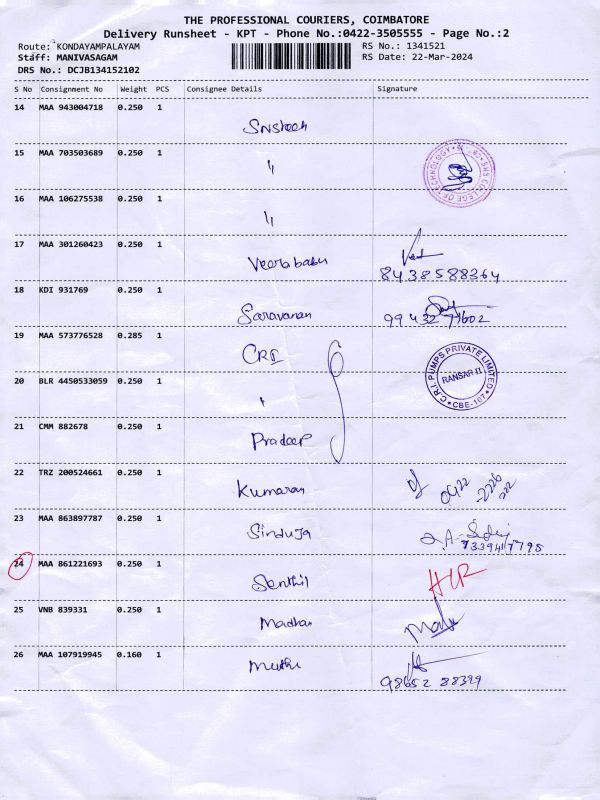 THE PROFESSIONAL COURIERS, COIMBATORE
Delivery Runsheet - KPT - Phone No.:0422-3505555 - Page No.:2
Route: KONDAYAMPALAYAM RS No.: 1341521
Staff: MANIVASAGAM RS Date: 22-Mar-2024
DRS No.: DCJB134152102
S No Consignment No Weight PCS Consignee Details Signature
14 MAA 943004718 0.250 1
15 MAA 703503689 0.250 1 〃
SNS COLLEGE OF TECHNOLOGY
16 MAA 106275538 0.250 1 〃
17 MAA 301260423 0.250 1 Veerababu
8438588364
18 KDI 931769 0.250 1 Saravanan
99432 77602
19 MAA 573776528 0.285 1 CRI
C.R.I. PUMPS PRIVATE LIMITED
CBE-107
20 BLR 4450533059 0.250 1 〃
21 CMM 882678 0.250 1 Pradeep
22 TRZ 200524661 0.250 1 Kumaran
0422
23 MAA 863897787 0.250 1 Sinduja
7339417795
24 MAA 861221693 0.250 1 Senthil
25 VNB 839331 0.250 1 Madhan
26 MAA 107919945 0.160 1 Muthu
98652 88399